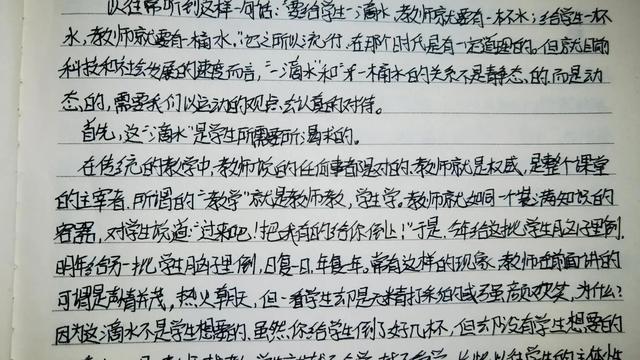 以往常听到这样一句话："要给学生一滴水,教师就要有一杯水;给学生一杯
水,教师就要有一桶水."它之所以流行,在那个时代是有一定道理的,但就目前
科技和社会发展的速度而言,"一滴水"和"一桶水的关系不是静态的,而是动
态的,需要我们以运动的观点去认真的对待。
首先,这"滴水"是学生所需要所渴求的。
在传统的教学中,教师说的任何事都是对的.教师就是权威,是整个课堂
的主宰者.所谓的"教学"就是教师教,学生学。教师就如同一个装满知识的
容器,对学生说道:"过来吧!把我有的给你倒上!"于是,今年给这批学生脑子里倒,
明年给另一批学生脑子里倒,日复一日,年复一年,常有这样的现象,教师在前面讲的
可谓是声情并茂,热火朝天,但一看学生却是无精打采的或强颜欢笑,为什么?
因为这滴水不是学生想要的.虽然,你给学生倒了好几杯,但却没有学生想要的